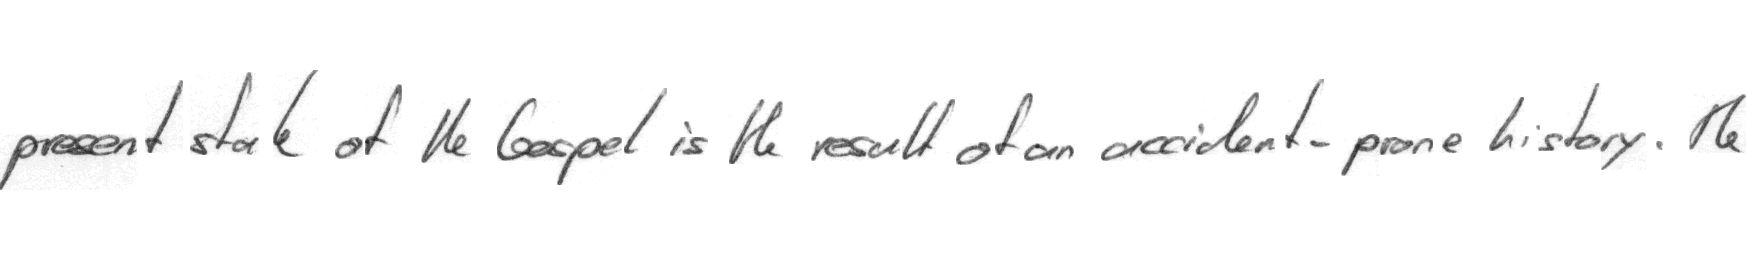 present state of the Gospel is the result of an accident-prone history. The